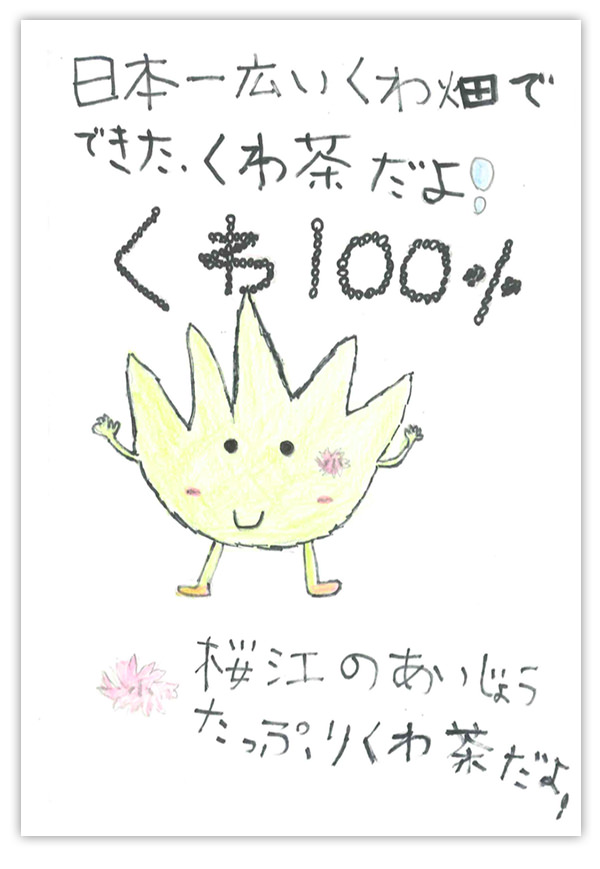 日本一広いくわ畑で
できた、くわ茶だよ!
くわ100%
桜江のあいじょう
たっぷりくわ茶だよ!